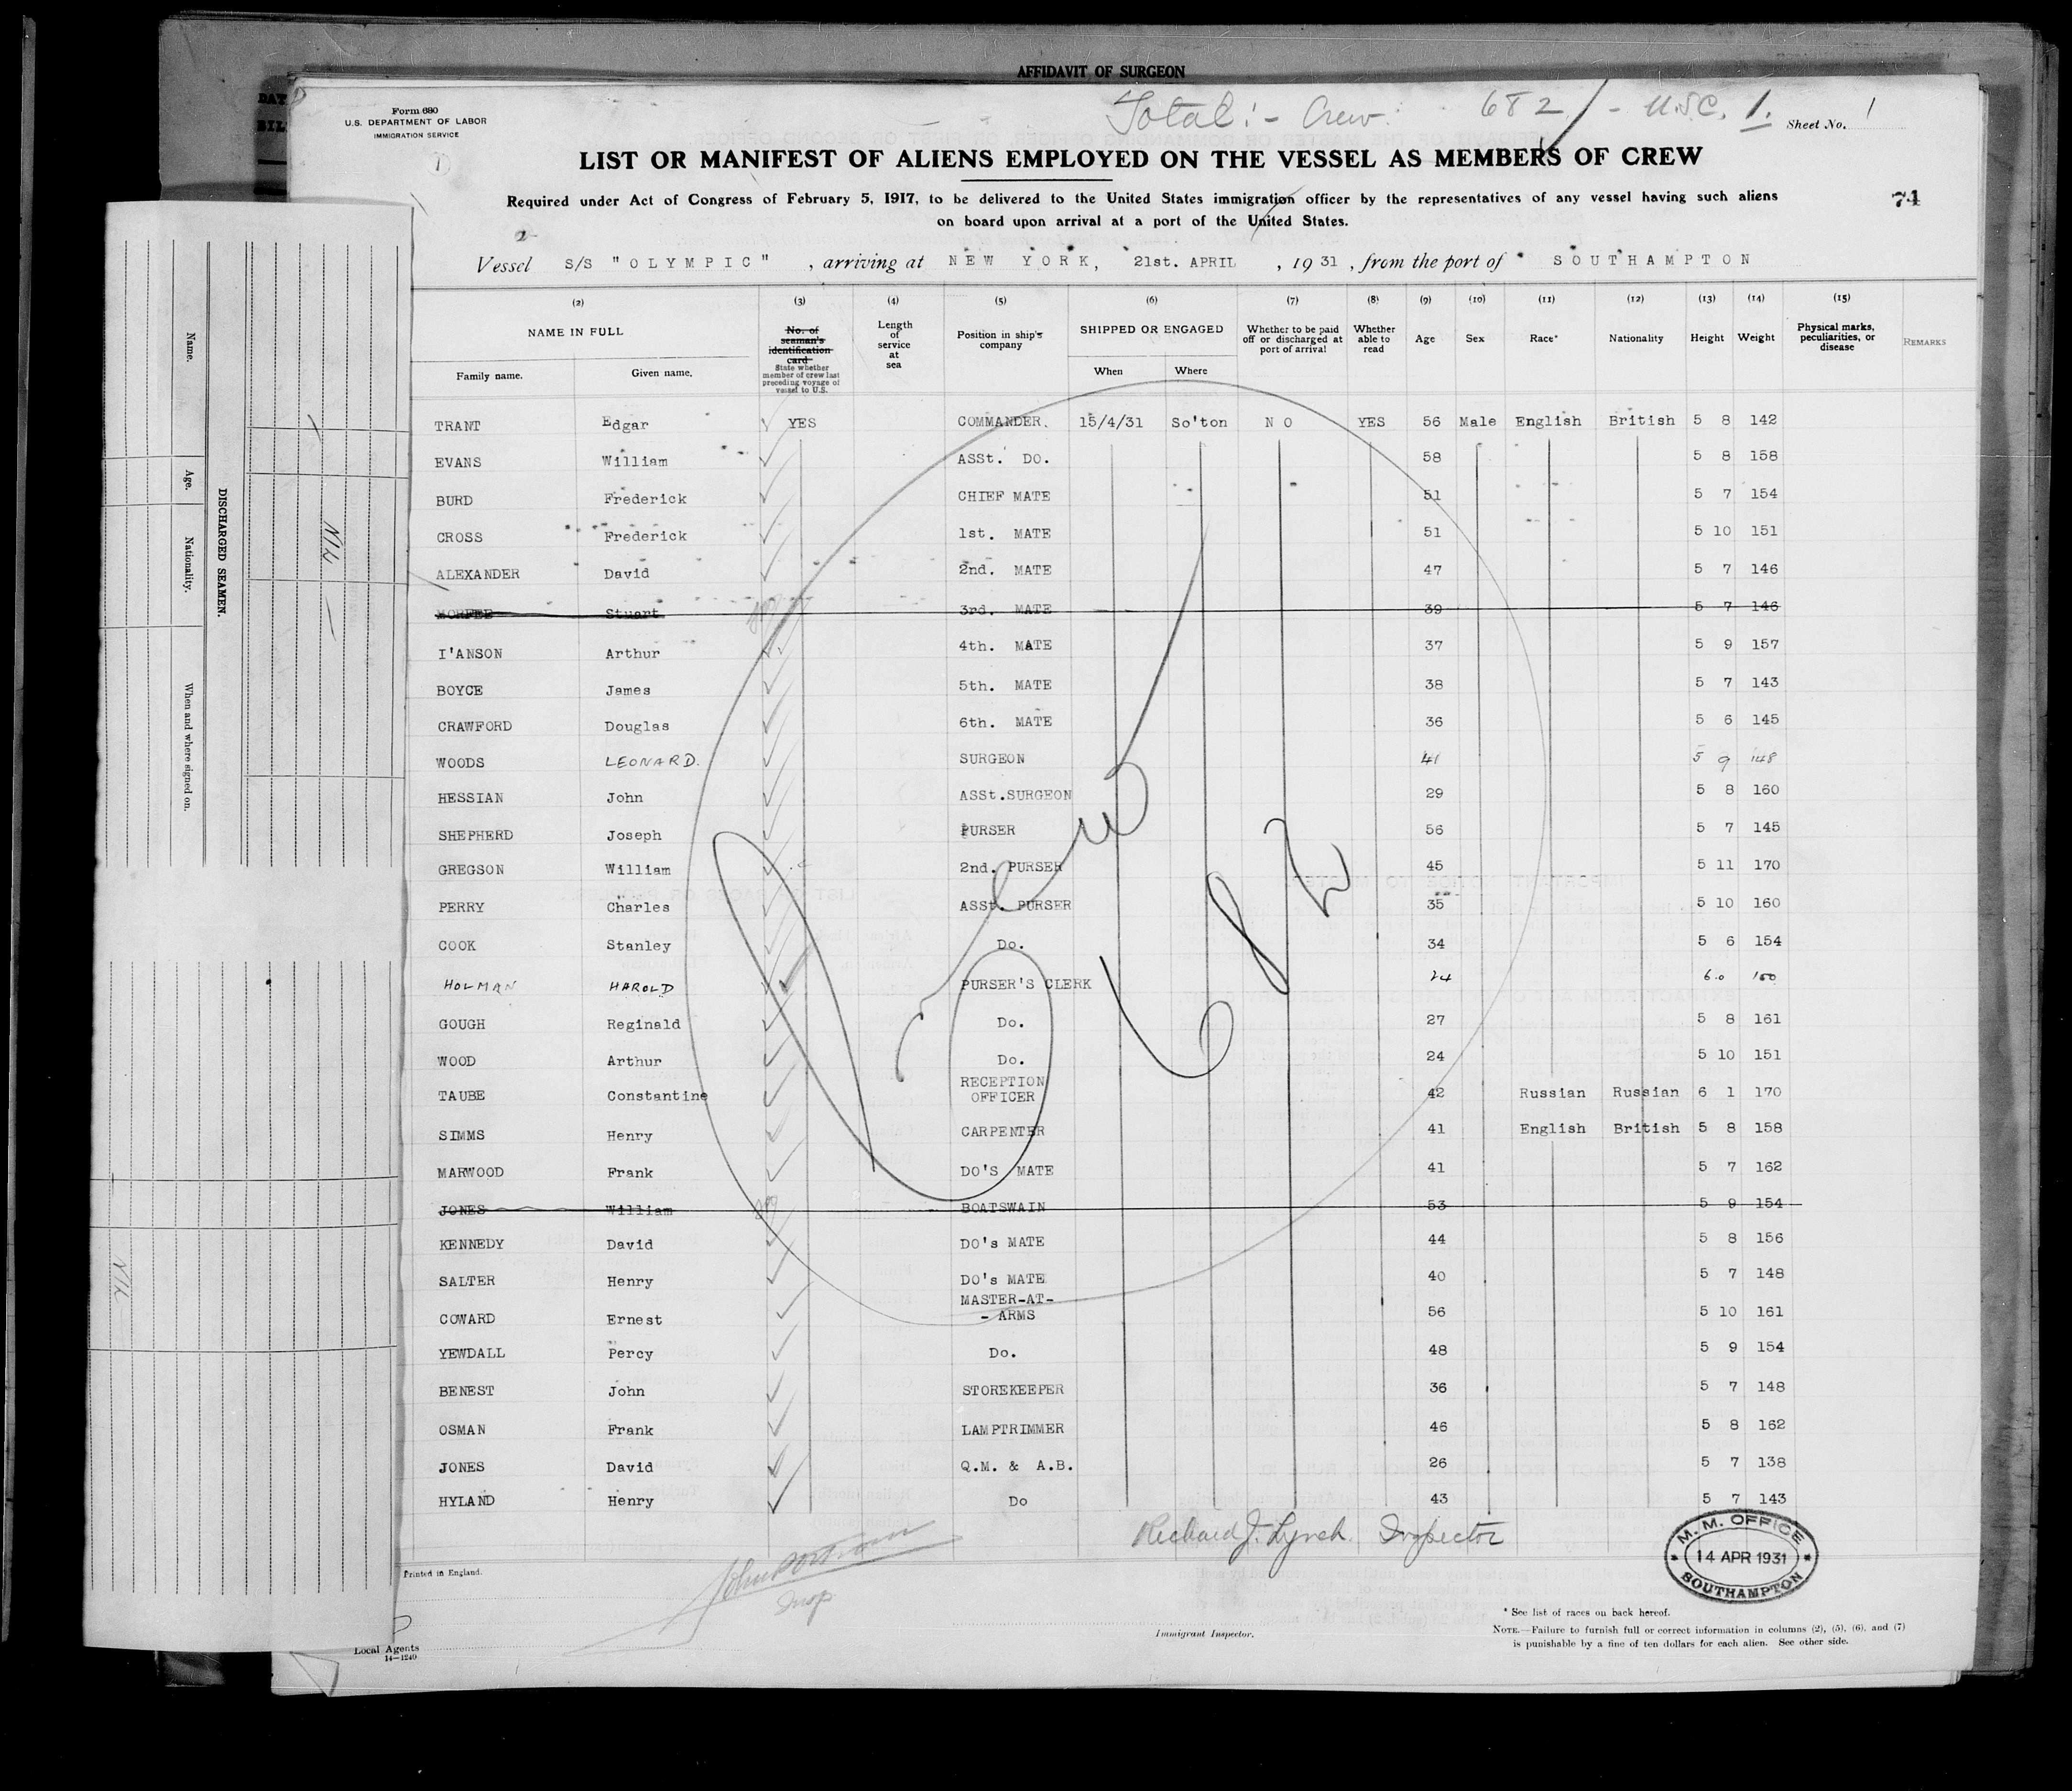 AFFIDAVIT OF SURGEON
Form 680
U.S. DEPARTMENT OF LABOR
IMMIGRATION SERVICE
Total:- Crew: 682 / - U.S.C. 1.
Sheet No. 1
1
LIST OR MANIFEST OF ALIENS EMPLOYED ON THE VESSEL AS MEMBERS OF CREW
Required under Act of Congress of February 5, 1917, to be delivered to the United States immigration officer by the representatives of any vessel having such aliens
on board upon arrival at a port of the United States.
74
2
Vessel S/S "OLYMPIC", arriving at NEW YORK, 21st. APRIL, 1931, from the port of SOUTHAMPTON
(2) (3) (4) (5) (6) (7) (8) (9) (10) (11) (12) (13) (14) (15)
NAME IN FULL
Family name. Given name.
No. of seaman's identification card
State whether member of crew last preceding voyage of vessel to U.S.
Length of service at sea
Position in ship's company
SHIPPED OR ENGAGED
When Where
Whether to be paid off or discharged at port of arrival
Whether able to read
Age Sex Race* Nationality Height Weight
Physical marks, peculiarities, or disease
REMARKS
TRANT Edgar YES COMMANDER. 15/4/31 So'ton NO YES 56 Male English British 5 8 142
EVANS William ASSt. DO. 58 5 8 158
BURD Frederick CHIEF MATE 51 5 7 154
CROSS Frederick 1st. MATE 51 5 10 151
ALEXANDER David 2nd. MATE 47 5 7 146
Stuart 3rd. MATE 39 5 7 146
I'ANSON Arthur 4th. MATE 37 5 9 157
BOYCE James 5th. MATE 38 5 7 143
CRAWFORD Douglas 6th. MATE 36 5 6 145
WOODS LEONARD. SURGEON 41 5 9 148
HESSIAN John ASSt.SURGEON 29 5 8 160
SHEPHERD Joseph PURSER 56 5 7 145
GREGSON William 2nd. PURSER 45 5 11 170
PERRY Charles ASSt. PURSER 35 5 10 160
COOK Stanley Do. 34 5 6 154
HOLMAN HAROLD PURSER'S CLERK 24 6.0
GOUGH Reginald Do. 27 5 8 161
WOOD Arthur Do. 24 5 10 151
TAUBE Constantine RECEPTION OFFICER 42 Russian Russian 6 1 170
SIMMS Henry CARPENTER 41 English British 5 8 158
MARWOOD Frank DO'S MATE 41 5 7 162
JONES William BOATSWAIN 53 5 9 154
KENNEDY David DO's MATE 44 5 8 156
SALTER Henry DO's MATE 40 5 7 148
COWARD Ernest MASTER-AT-
- ARMS 56 5 10 161
YEWDALL Percy Do. 48 5 9 154
BENEST John STOREKEEPER 36 5 7 148
OSMAN Frank LAMPTRIMMER 46 5 8 162
JONES David Q.M. & A.B. 26 5 7 138
HYLAND Henry Do 43 5 7 143
Crew
682
Richard J. Lynch. Inspector
Insp
M. M. OFFICE
14 APR 1931
SOUTHAMPTON
Printed in England.
Immigrant Inspector.
* See list of races on back hereof.
NOTE.—Failure to furnish full or correct information in columns (2), (5), (6), and (7)
is punishable by a fine of ten dollars for each alien. See other side.
Local Agents
14—1240
DISCHARGED SEAMEN.
Name.
Age.
Nationality.
When and where signed on.
NIL
NIL